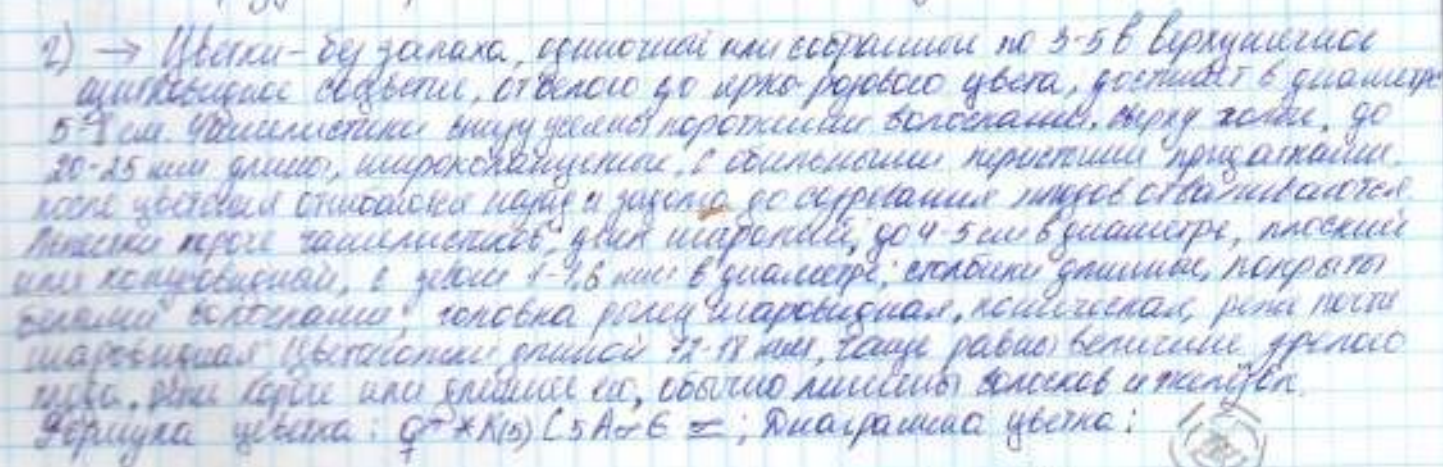 2) → Цветки – без запаха, одиночные или собранные по 3-5 в верхушечное
щитковидное соцветие, от белого до ярко-розового цвета, достигает в диаметре
5-8 см. Чашелистики снизу усеяны короткими волосками, сверху голые, до
20-25 мм длины, широколанцетные, с обильными перистыми придатками.
после цветения отгибаются назад и задолго до созревания плодов отваливаются.
Лепестки короче чашелистиков, диск широкий, до 4-5 мм в диаметре, плоский
или конусовидный, с зевом 1-1,6 мм в диаметре; столбики длинные, покрыты
белыми волосками, головка рылец шаровидная, коническая, реже почти
шаровидная. Цветоножки длиной 12-18 мм, чаще равны величине зрелого
плода, реже короче или длиннее его, обычно лишены волосков и желёзок.
Формула цветка: * К(5) С5 А∞ G ; Диаграмма цветка: